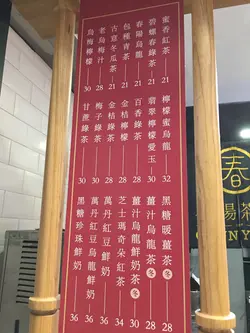 蜜香紅茶 21
碧螺春綠茶 21
春陽烏龍 21
包種青茶 21
冬瓜茶 21
老烏梅汁 28
烏梅檸檬 30
檸檬蜜烏龍 32
翡翠檸檬愛玉 30
百香綠茶 28
金桔檸檬 28
金桔綠茶 28
梅子綠茶 30
甘蔗綠茶 30
黑糖暖薑茶 冬 28
薑汁烏龍茶 冬 28
薑汁烏龍鮮奶茶 冬 30
芝士瑪奇朵紅茶 34
萬丹紅豆鮮奶 36
萬丹紅豆烏龍鮮奶 36
黑糖珍珠鮮奶 36
春
陽茶